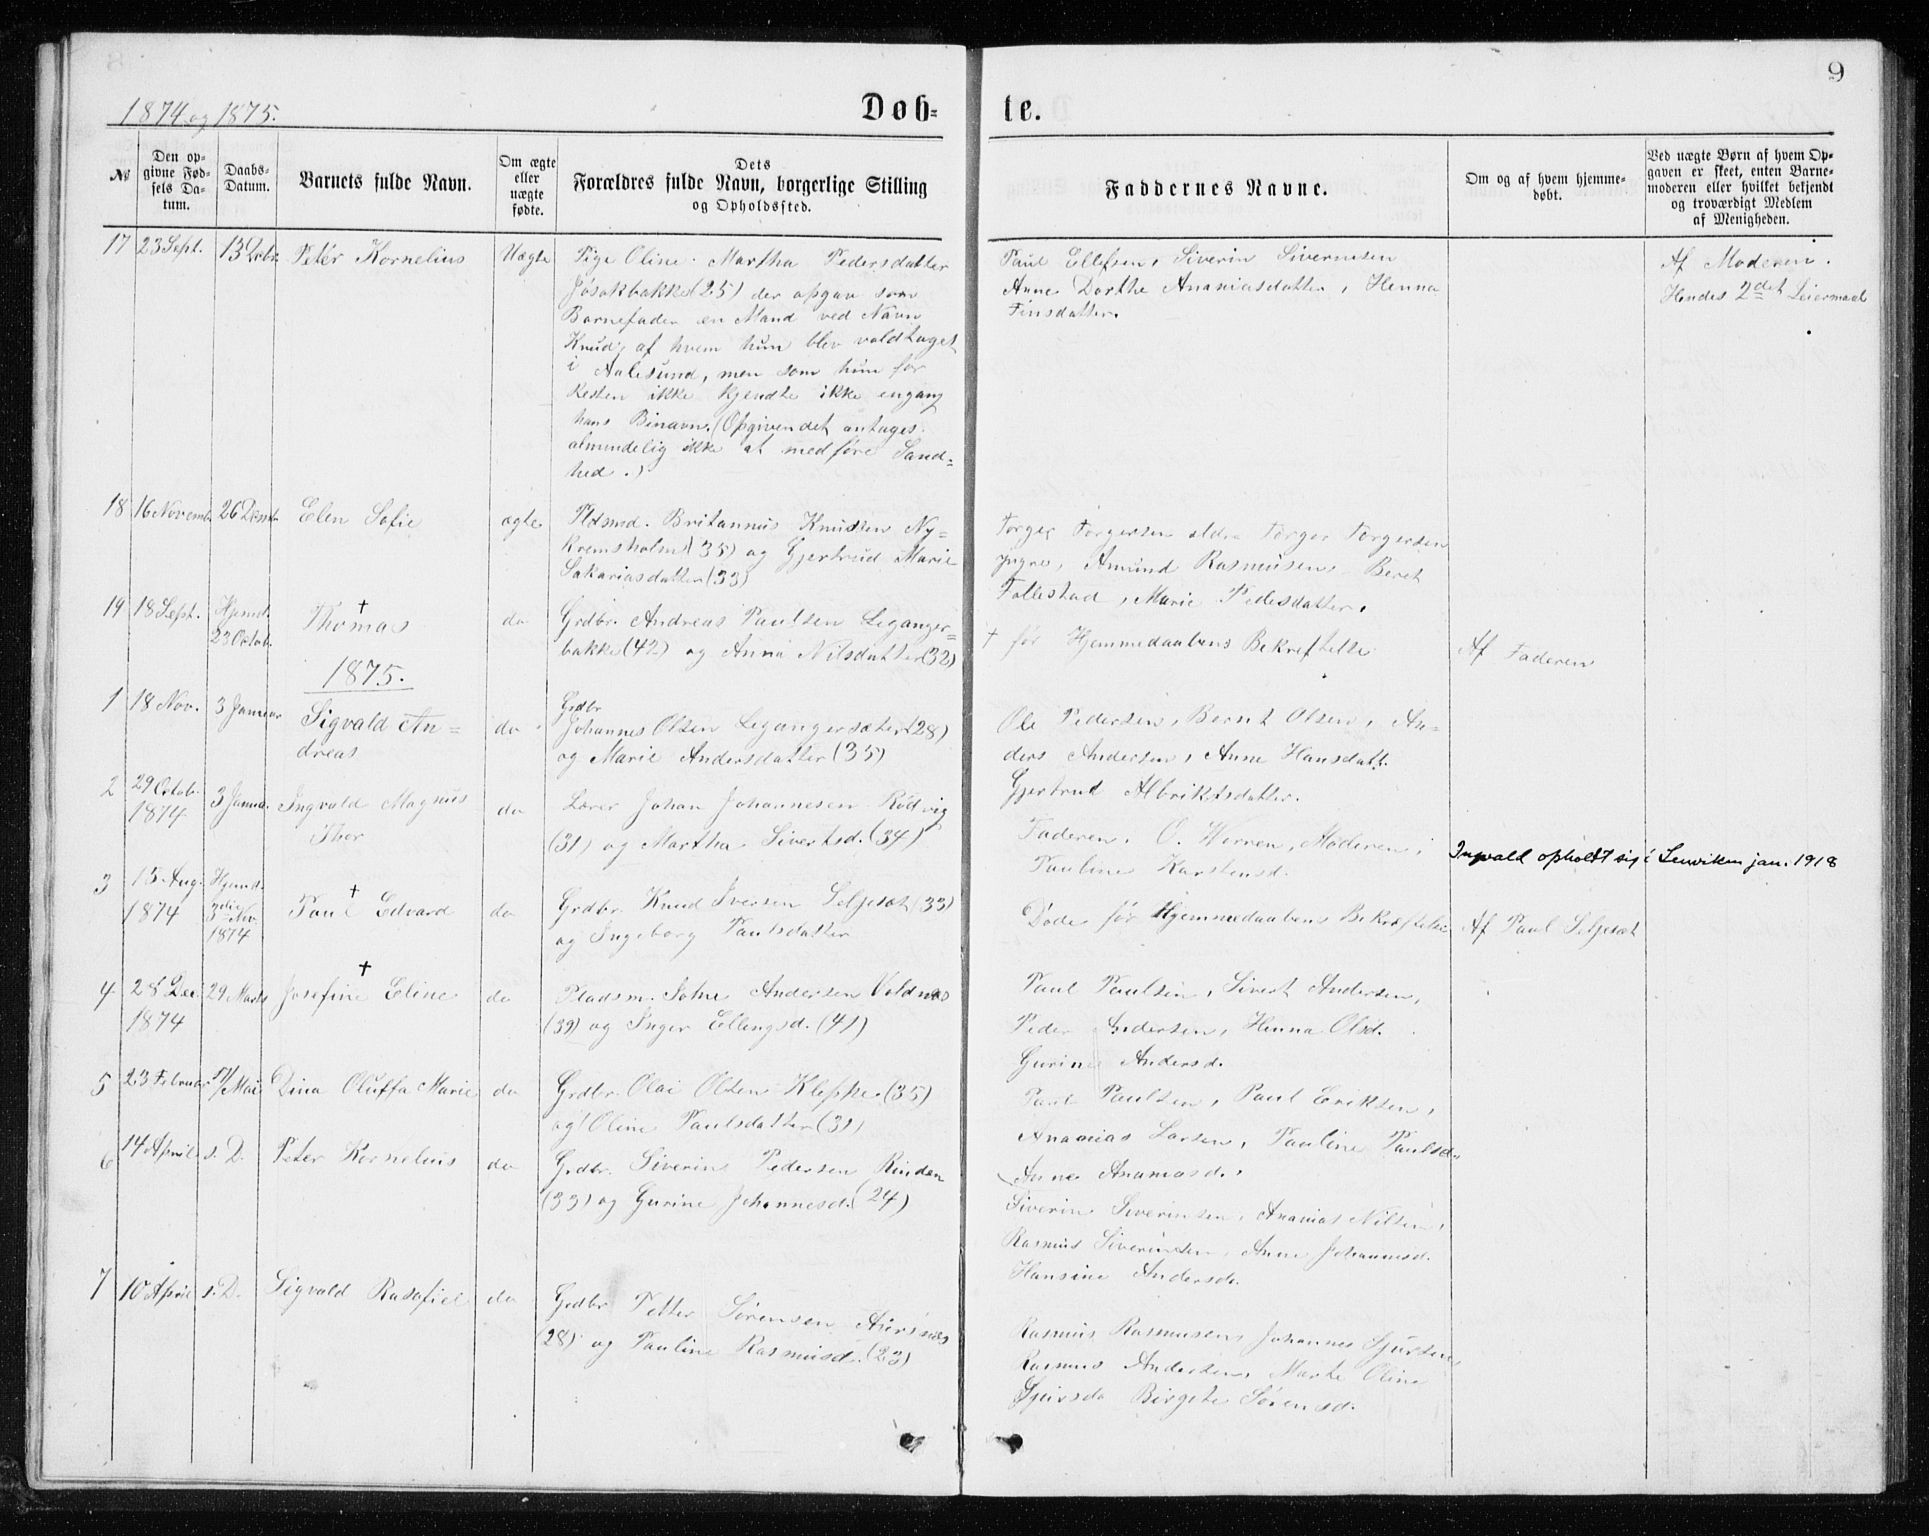 9
1874 og 1875.
Døb-
te.
№
Den op-
givne Fød-
sels Da-
tum.
Daabs-
Datum.
Barnets fulde Navn.
Om ægte
eller
uægte
fødte.
Dets
Forældres fulde Navn, borgerlige Stilling
og Opholdssted.
Faddernes Navne.
Om og af hvem hjemme-
døbt.
Ved uægte Børn af hvem Op-
gaven er skeet, enten Barne-
moderen eller hvilket bekjendt
og troværdigt Medlem
af Menigheden.
17 23 Sept. 13 Debr. Peter Kornelius Uægte
Pige Oline Martha Pedersdatter
Jøsokbakke (25) der opgav som
Barnefader en Mand ved Navn
Knud, af hvem hun blev voldtaget
i Aalesund, men som hun for
Resten ikke kjendte ikke engang
hans Binavn. (Opgivendet antages
almindelig ikke at medføre Sand=
hed.)
Paul Ellefsen, Siverin Sivernesen
Anne Dorthe Ananiasdatter, Henna
Finsdatter.
Af Moderen.
Hendes 2det Leiermaal
18 16 Novemb. 26 Desmb. Elen Sofie ægte
Pldsmd. Britannus Knudsen Ny=
kremsholm (35) og Gjertrud Marie
Sakariasdatter (33)
Torger Torgersen eldre Torger Torgersen
yngre, Amund Rasmusen Beret
Follestad, Marie Pedesdatter.
19 18 Sept. Hjemd.
23 Octob. Thomas † do
Grdbr. Andreas Paulsen Leganger=
bakke (42) og Anna Nilsdatter (32)
† før Hjemmedaabens Bekreftelse
Af Faderen
1875.
1 18 Nov. 3 Januar Sigvald An=
dreas do
Grdbr
Johannes Olsen Legangersæter (28)
og Marie Andersdatter (35)
Ole Pedersen, Bernt Olsen, An=
ders Andersen, Anne Hansdatt.
Gjertrud Albriktsdatter.
2 29 Octob.
1874 3 Janua. Ingvald Magnus
Thor do
Lærer Johan Johannesen Rødvig
(31) og Martha Sivertsd. (34)
Faderen, O. Werven, Moderen,
Pauline Karstensd.
Ingvald opholdt sig i Lenviken jan. 1918
3 15 Aug.
1874 Hjemd.
3 Nov
1874 Paul Edvard † do
Grdbr. Knud Iversen Seljesæt (33)
og Ingeborg Paulsdatter
Døde før Hjemmedaabens Bekræftelse
Af Paul Seljesæt
4 28 Dec.
1874 29 Marts Josefine Eline † do
Pladsm. Andersen Voldnes
(39) og Inger Ellingsd. (41)
Paul Paulsen, Sivert Andersen,
Peder Andersen, Henna Olsd.
Gurine Andersd.
5 23 Februar Mai Dina Oluffa Marie do
Grdbr. Olai Olsen Kleppe (35)
og Oline Paulsdatter (31)
Paul Paulsen, Paul Eriksen,
Ananias Larsen, Pauline Paulsd.
Anne Ananiasd.
6 14 April s. D. Peter Kornelius do
Grdbr. Siverin Pedersen Rinden
(33) og Gurine Johannesd. (24)
Siverin Siverinsen, Ananias Nilsen,
Rasmus Siverinsen, Anne Johannesd.
Hansine Andersd.
7 10 April s. D. Sigvald Rasofiel do
Grdbr Petter Sørensen Aursnes
(28) og Pauline Rasmusd. (23)
Rasmus Rasmusen, Johannes Sjursen,
Rasmus Andersen, Marte Oline
Sjursd. Birgete Sørensd.